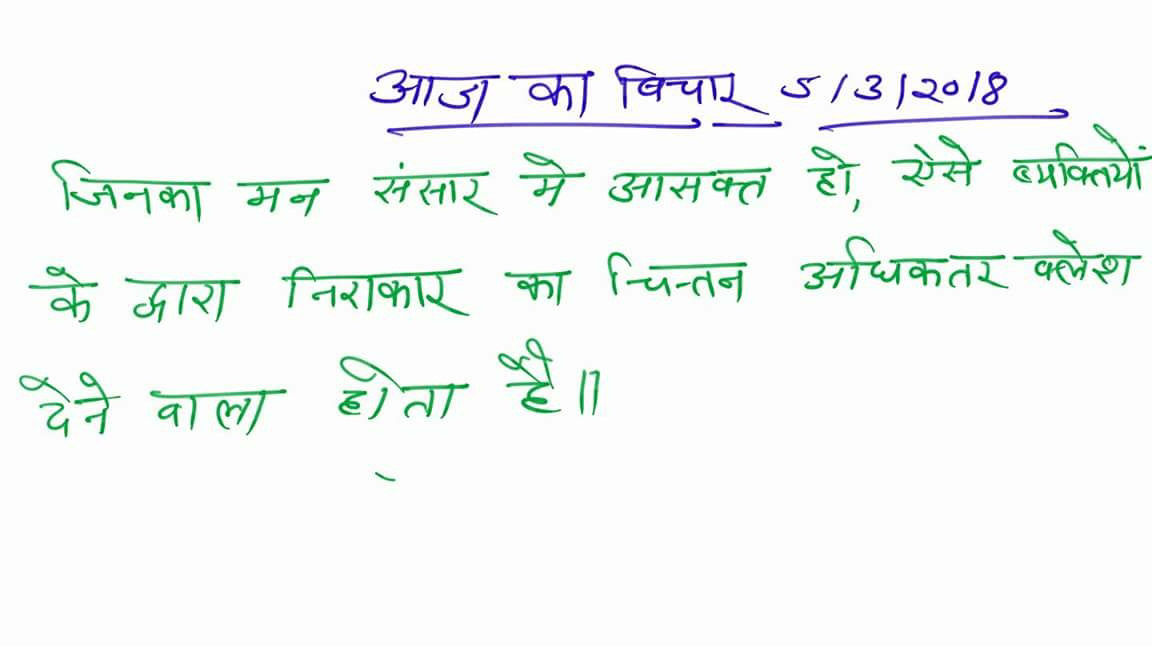 आज का विचार 5/3/2018
जिनका मन संसार मे आसक्त हो, ऐसे व्यक्तियों
के द्वारा निराकार का चिन्तन अधिकतर क्लेश
देने वाला होता है॥